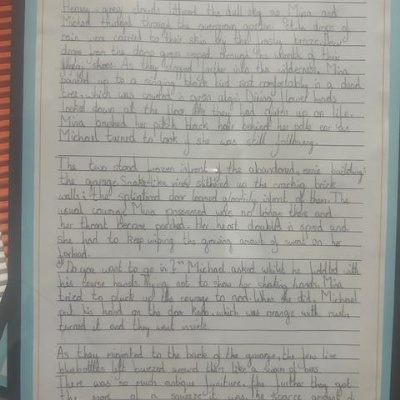 Heavy, grey clouds littered the dull sky as Mina and
Michael trudged through the overgrown garden. Little drops of
rain were carried to their skin by the
drops from the damp grass seeped through the
shoes. As they stepped further into the wilderness, Mina
pointed up to a singing black bird sat comfortably in a dead
tree, which was covered in green algae. Dying flower heads
looked down at the floor like they had given up on life.
Mina brushed her pitch black hair behind her pale ear as
Michael turned to look if she was still following.
The two stood frozen infront of the abandoned, eerie building:
the garage. Snake-like vines slithered up the cracking brick
walls; the splintered door loomed gloomily infront of them. The
usual courage Mina possessed was no longer there and
her throat became parched. Her heart doubled in speed and
she had to keep wiping the growing amount of sweat on her
forehead.
"Do you want to go in?" Michael asked whilst he fiddled with
his coarse hands, trying not to show her shaking hands. Mina
tried to pluck up the courage to nod. When she did, Michael
put his hand on the door knob, which was orange with rust,
turned it and they went inside.
As they ventured to the back of the garage, the few live
bluebottles left buzzed around them like a swarm of bees.
There was so much antique furniture, the further they got
the more of a squeeze it was. The amount of